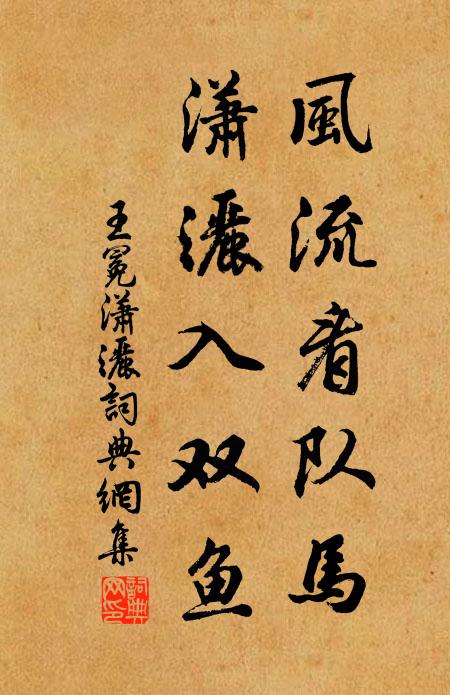 風流看队馬
瀟灑入双鱼
王冕瀟灑詞典網集
詞典网印